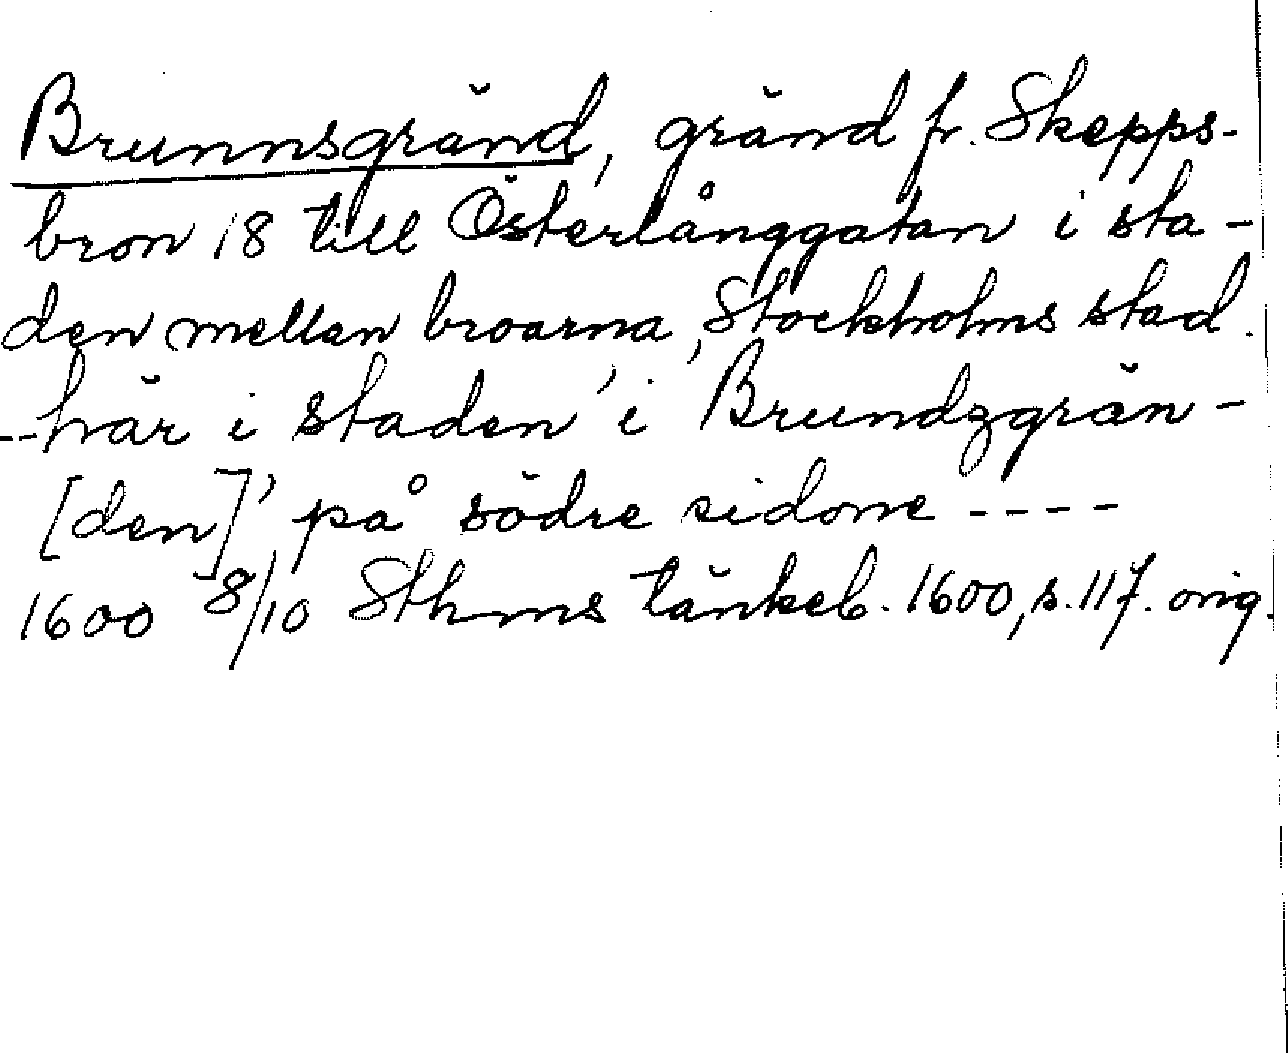 Brunnsgränd, gränd fr. Skepps-
bron 18 till Österlånggatan i sta-
den mellan broarna, Stockholms stad.
--här i staden' i Brundzgrän-
[den]' på södre sidone ----
1600 8/10 Sthms tänkeb. 1600, s. 117. orig.